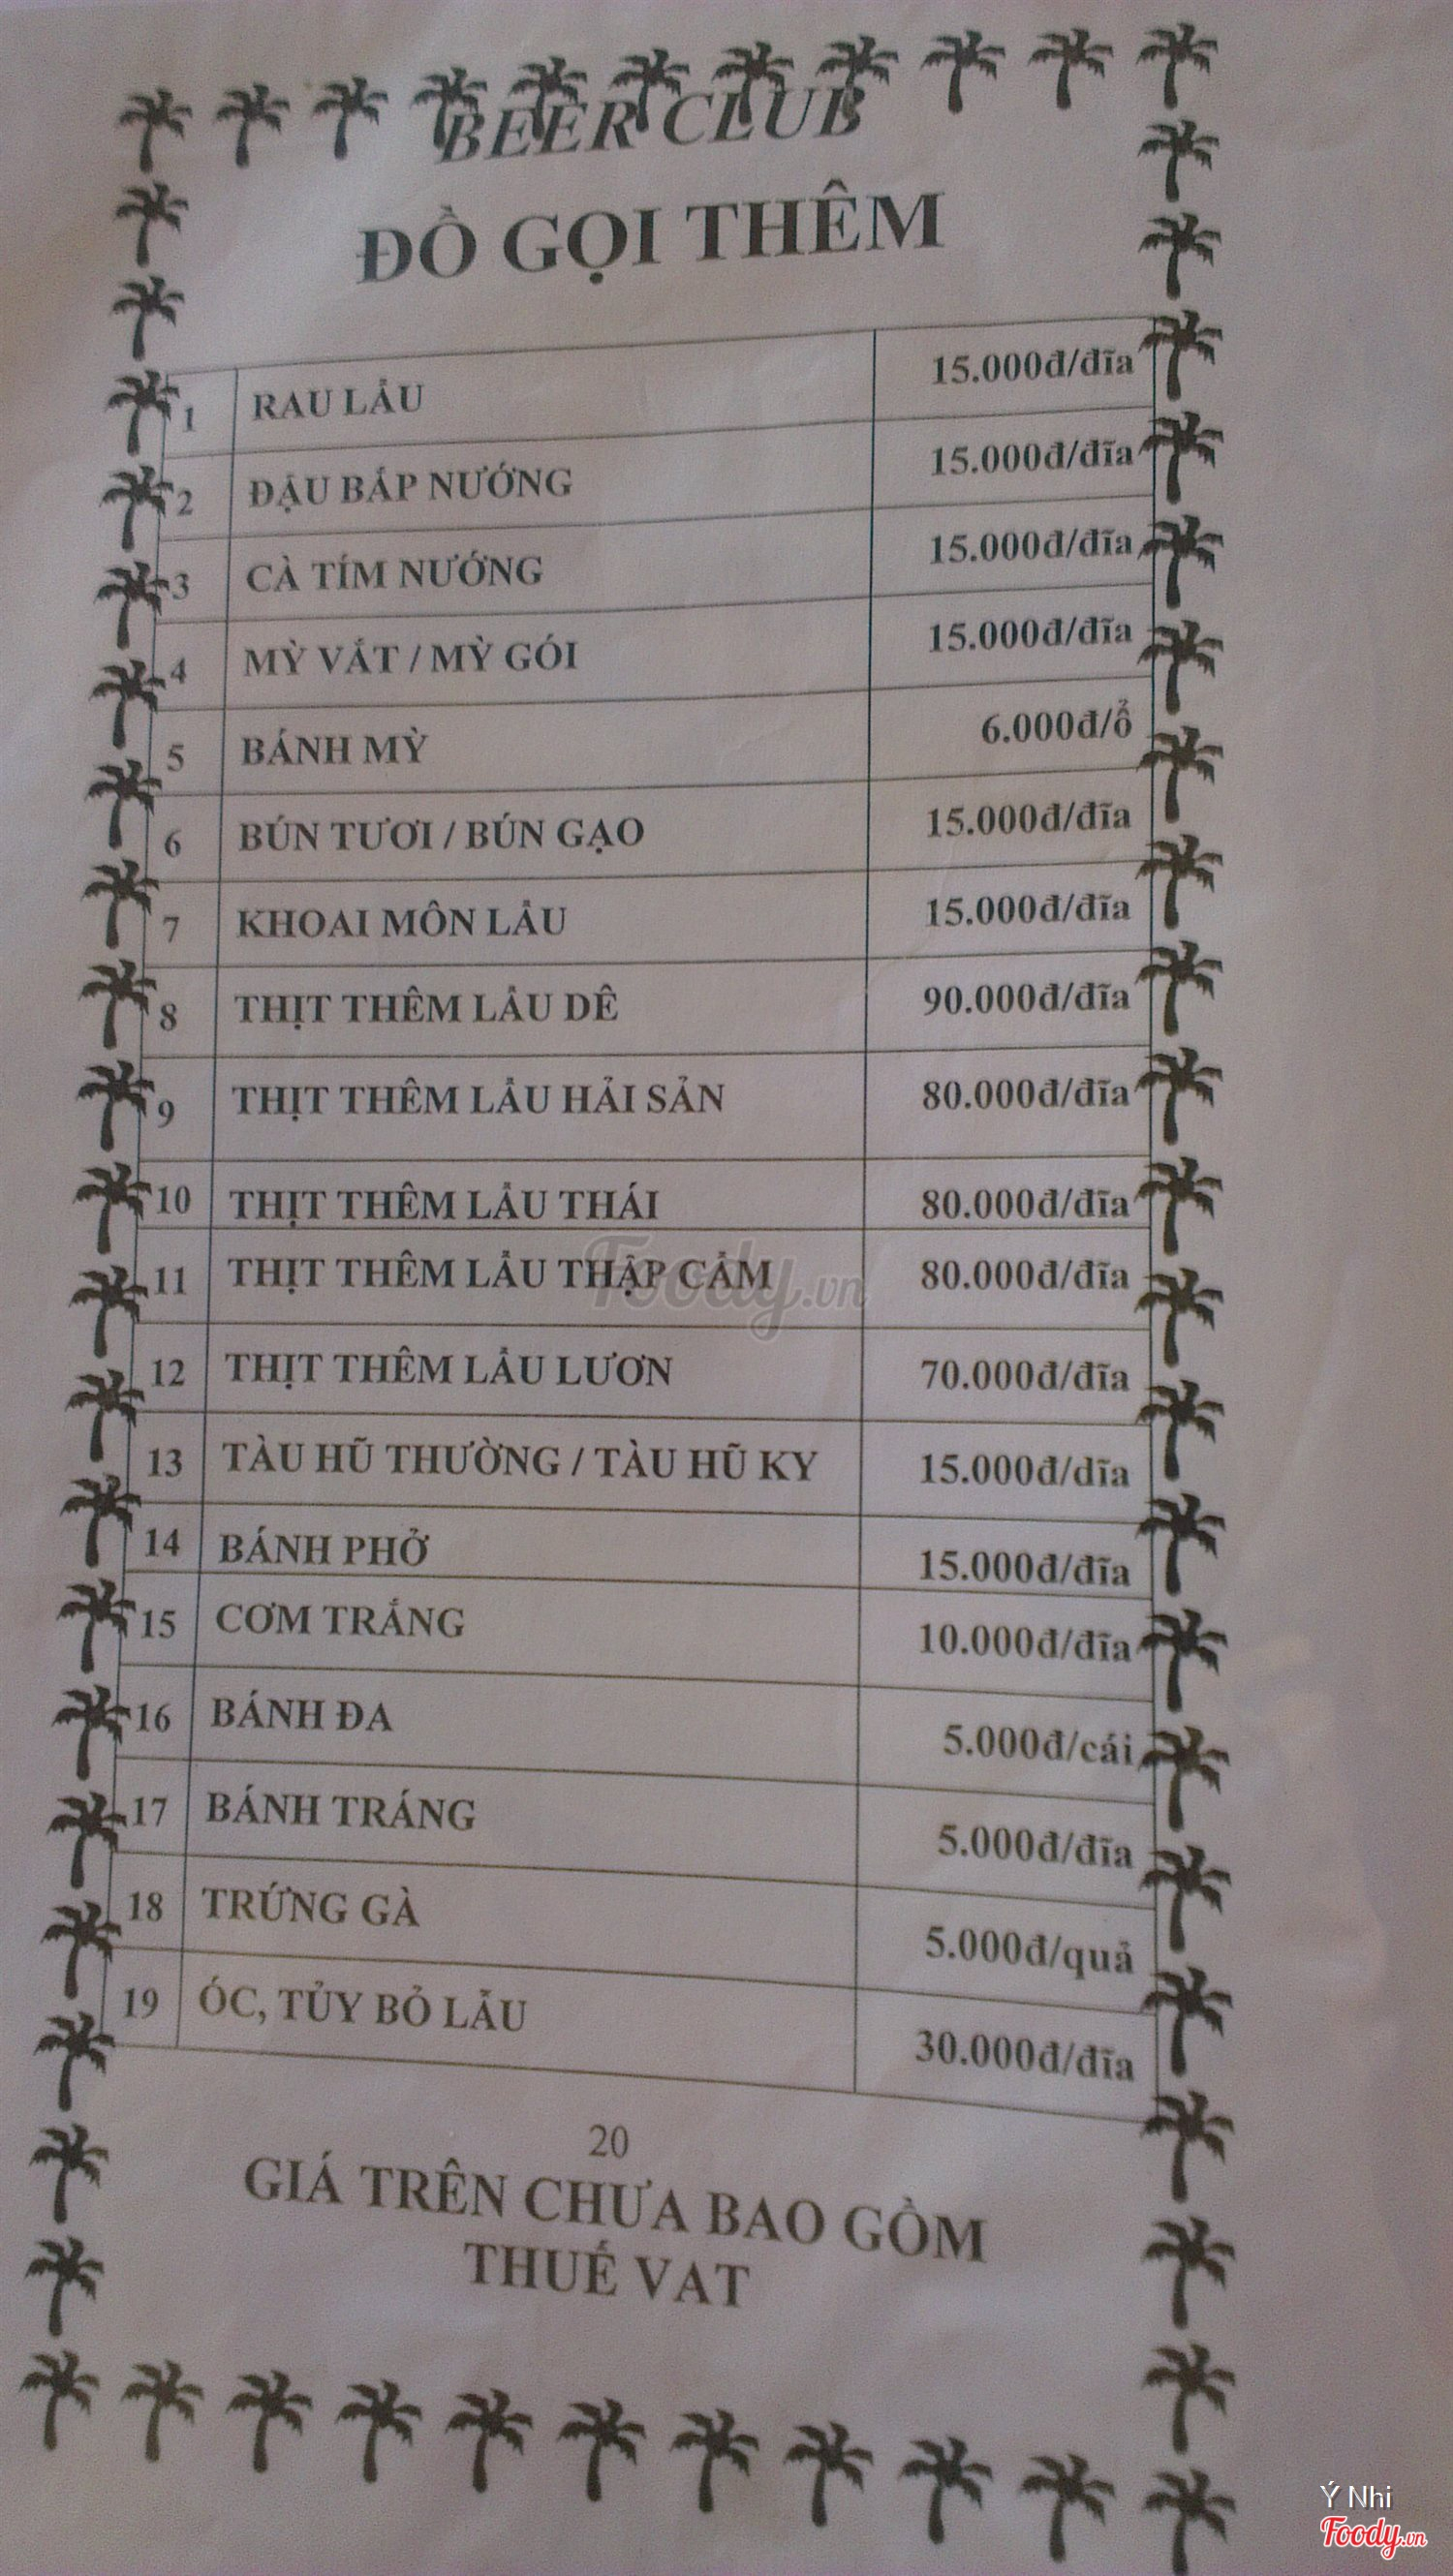 BEER CLUB
ĐỒ GỌI THÊM
1 RAU LẨU 15.000đ/đĩa
2 ĐẬU BẮP NƯỚNG 15.000đ/đĩa
3 CÀ TÍM NƯỚNG 15.000đ/đĩa
4 MỲ VẮT / MỲ GÓI 15.000đ/đĩa
5 BÁNH MỲ 6.000đ/ổ
6 BÚN TƯƠI / BÚN GẠO 15.000đ/đĩa
7 KHOAI MÔN LẨU 15.000đ/đĩa
8 THỊT THÊM LẨU DÊ 90.000đ/đĩa
9 THỊT THÊM LẨU HẢI SẢN 80.000đ/đĩa
10 THỊT THÊM LẨU THÁI 80.000đ/đĩa
11 THỊT THÊM LẨU THẬP CẨM 80.000đ/đĩa
12 THỊT THÊM LẨU LƯƠN 70.000đ/đĩa
13 TÀU HŨ THƯỜNG / TÀU HŨ KY 15.000đ/dĩa
14 BÁNH PHỞ 15.000đ/đĩa
15 CƠM TRẮNG 10.000đ/đĩa
16 BÁNH ĐA 5.000đ/cái
17 BÁNH TRÁNG 5.000đ/đĩa
18 TRỨNG GÀ 5.000đ/quả
19 ÓC, TỦY BỎ LẨU 30.000đ/đĩa
20
GIÁ TRÊN CHƯA BAO GỒM
THUẾ VAT
Foody.vn
Ý Nhi
Foody.vn